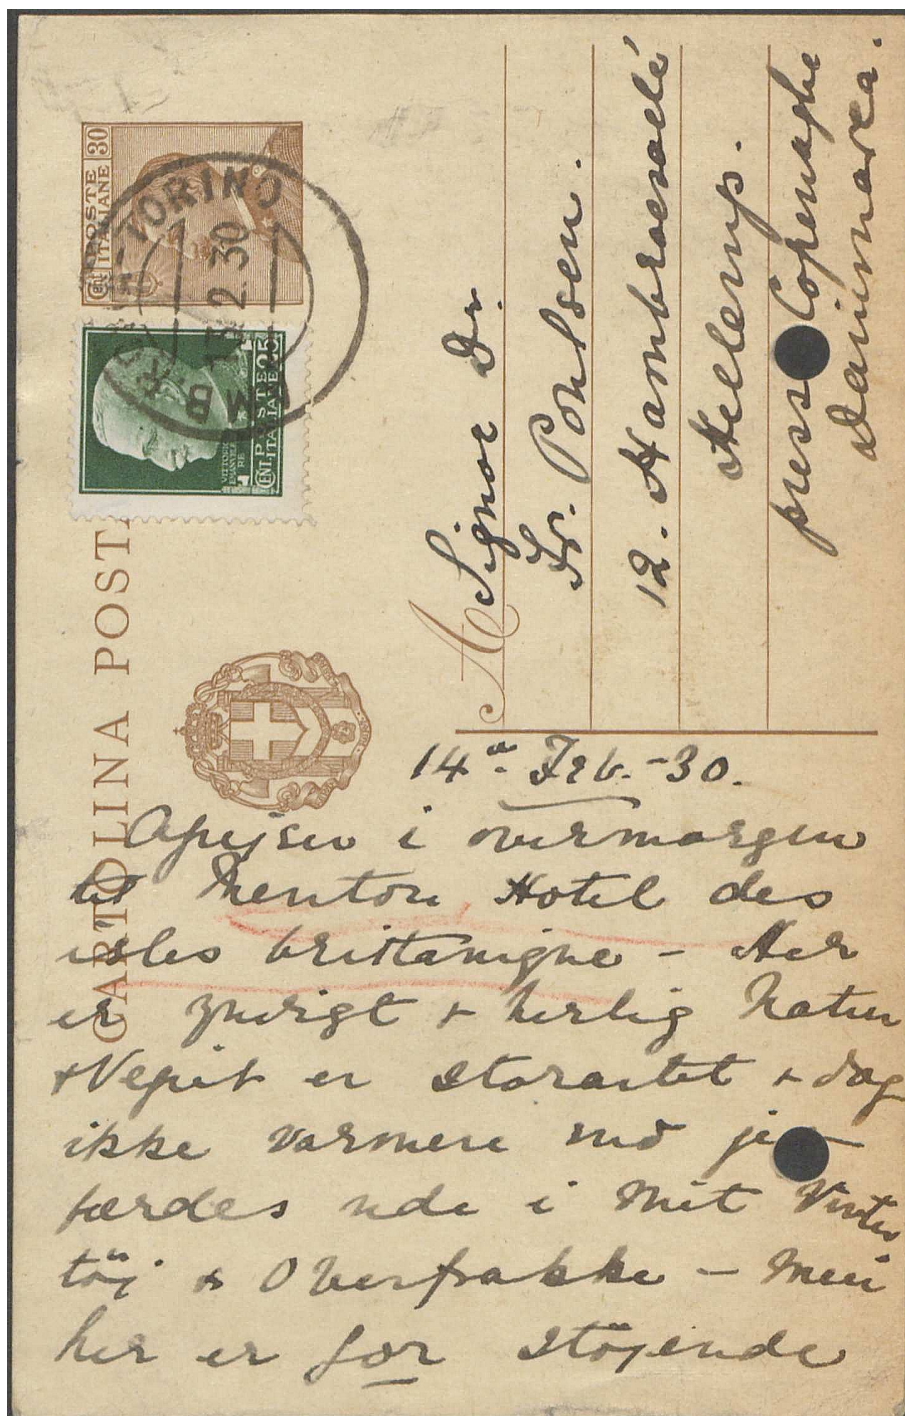 CARTOLINA POSTA
POSTE
ITALIANE
CENT
30
POSTE
ITALIANE
CENT 25
VITTORIO
EMANUELE
RE
TORINO
2.30
AMB
A Signor Dr.
Fr. Poulsen.
12. Hambrosallé
Hellerup.
presso Copenaghe
Danimarca.
14 Feb. - 30.
Afrejser i overmorgen
til Menton Hotel des
isles brittanigne - Her
er yndigt + herlig Natur
+ Vejret er storartet + dog
ikke varmere end jeg
færdes ude i mit Vinter
töj & Overfrakke - Men
her er for stöjende